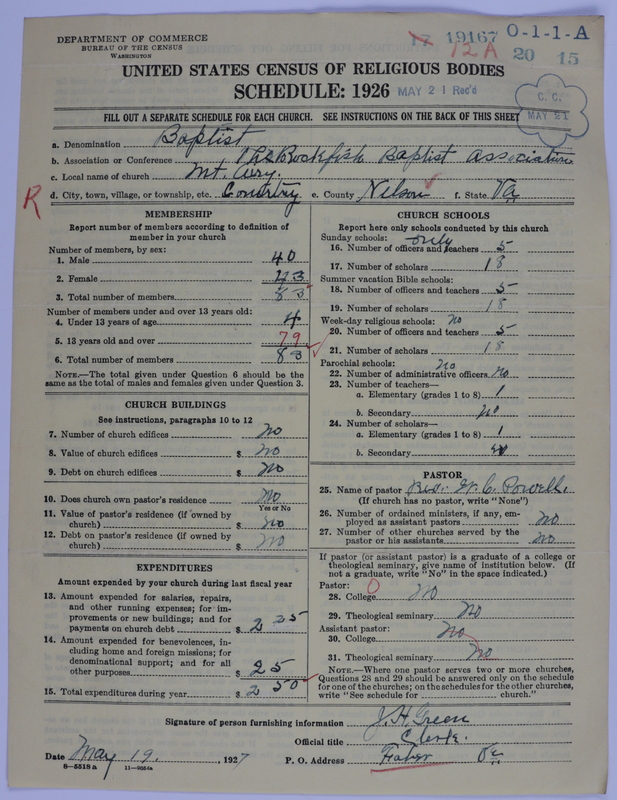 DEPARTMENT OF COMMERCE
BUREAU OF THE CENSUS
WASHINGTON
17 19167 O-1-1-A
12A 20 15
UNITED STATES CENSUS OF RELIGIOUS BODIES
SCHEDULE: 1926 MAY 21 Rec'd
C. C.
MAY 21
FILL OUT A SEPARATE SCHEDULE FOR EACH CHURCH. SEE INSTRUCTIONS ON THE BACK OF THIS SHEET
a. Denomination Baptist
b. Association or Conference The Rockfish Baptist Association
c. Local name of church Mt. Airy.
R d. City, town, village, or township, etc. Country e. County Nelson f. State Va
MEMBERSHIP
Report number of members according to definition of
member in your church
Number of members, by sex:
1. Male 40
2. Female 43
3. Total number of members 83
Number of members under and over 13 years old:
4. Under 13 years of age 4
5. 13 years old and over 79
6. Total number of members 83
NOTE.—The total given under Question 6 should be
same as the total of males and females given under Question 3.
CHURCH BUILDINGS
See instructions, paragraphs 10 to 12
7. Number of church edifices no
8. Value of church edifices $ no
9. Debt on church edifices $ no
10. Does church own pastor's residence no
Yes or No
11. Value of pastor's residence (if owned by
church) $ no
12. Debt on pastor's residence (if owned by
church) $ no
EXPENDITURES
Amount expended by your church during last fiscal year
13. Amount expended for salaries, repairs,
and other running expenses; for im-
provements or new buildings; and for
payments on church debt $ 225
14. Amount expended for benevolences, in-
cluding home and foreign missions; for
denominational support; and for all
other purposes $ 25
15. Total expenditures during year $ 250
CHURCH SCHOOLS
Report here only schools conducted by this church
Sunday schools: only
16. Number of officers and teachers 5
17. Number of scholars 18
Summer vacation Bible schools:
18. Number of officers and teachers 5
19. Number of scholars 18
Week-day religious schools: no
20. Number of officers and teachers 5
21. Number of scholars 18
Parochial schools: no
22. Number of administrative officers no
23. Number of teachers—
a. Elementary (grades 1 to 8) 1
b. Secondary no
24. Number of scholars—
a. Elementary (grades 1 to 8) 1
b. Secondary no
PASTOR
25. Name of pastor Rev. W. C. Powell.
(If church has no pastor, write "None")
26. Number of ordained ministers, if any, em-
ployed as assistant pastors no
27. Number of other churches served by the
pastor or his assistants no
If pastor (or assistant pastor) is a graduate of a college or
theological seminary, give name of institution below. (If
not a graduate, write "No" in the space indicated.)
Pastor: O
28. College no
29. Theological seminary no
Assistant pastor: no
30. College
31. Theological seminary no
NOTE.—Where one pastor serves two or more churches,
Questions 28 and 29 should be answered only on the schedule
for one of the churches; on the schedules for the other churches,
write "See schedule for church."
Signature of person furnishing information J. H. Green
Official title Clerk.
Date May 19, 1927 P. O. Address Faber Va
8—5518 a 11—9654a